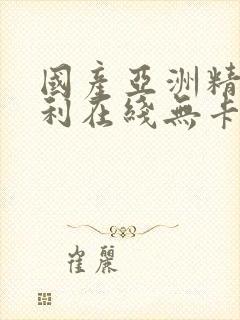 國產亞洲精
利在綫無卡
崔麗